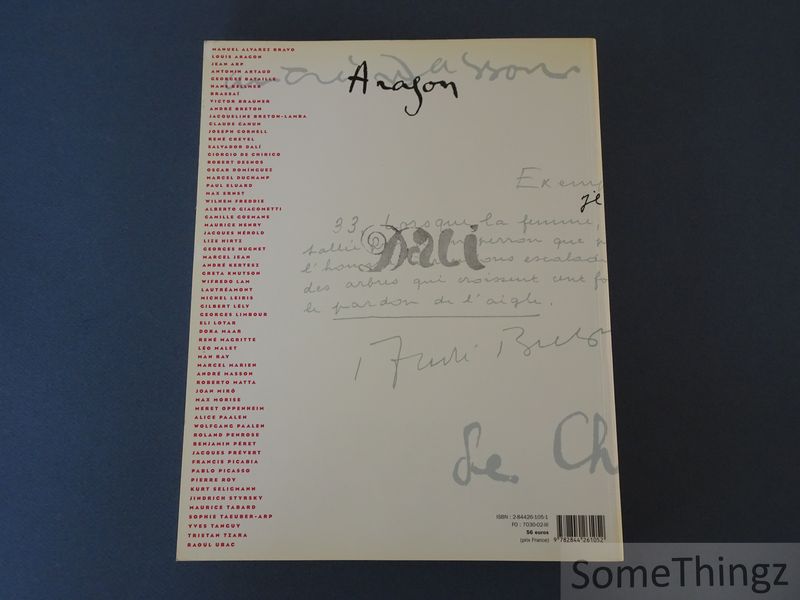 MANUEL ALVAREZ BRAVO
LOUIS ARAGON
JEAN ARP
ANTONIN ARTAUD
GEORGES BATAILLE
HANS BELLMER
BRASSAÏ
VICTOR BRAUNER
ANDRÉ BRETON
JACQUELINE BRETON-LAMBA
CLAUDE CAHUN
JOSEPH CORNELL
RENÉ CREVEL
SALVADOR DALÍ
GIORGIO DE CHIRICO
ROBERT DESNOS
OSCAR DOMÍNGUEZ
MARCEL DUCHAMP
PAUL ELUARD
MAX ERNST
WILHEM FREDDIE
ALBERTO GIACOMETTI
CAMILLE GOEMANS
MAURICE HENRY
JACQUES HÉROLD
LIZE HIRTZ
GEORGES HUGNET
MARCEL JEAN
ANDRÉ KERTESZ
GRETA KNUTSON
WIFREDO LAM
LAUTRÉAMONT
MICHEL LEIRIS
GILBERT LÉLY
GEORGES LIMBOUR
ELI LOTAR
DORA MAAR
RENÉ MAGRITTE
LÉO MALET
MAN RAY
MARCEL MARIEN
ANDRÉ MASSON
ROBERTO MATTA
JOAN MIRÓ
MAX MORISE
MERET OPPENHEIM
ALICE PAALEN
WOLFGANG PAALEN
ROLAND PENROSE
BENJAMIN PÉRET
JACQUES PRÉVERT
FRANCIS PICABIA
PABLO PICASSO
PIERRE ROY
KURT SELIGMANN
JINDRICH STYRSKY
MAURICE TABARD
SOPHIE TAEUBER-ARP
YVES TANGUY
TRISTAN TZARA
RAOUL UBAC
Masson
Aragon
Exem
je
33. Lorsque la femme,
Dalí
l'hom ous escalade
des arbres qui croissent ont fo
le pardon de l'aigle.
André Breto
de Ch
ISBN : 2-84426-105-1
PO : 7030-02-III
56 euros
(prix France)
9 782844 261052
SomeThingz